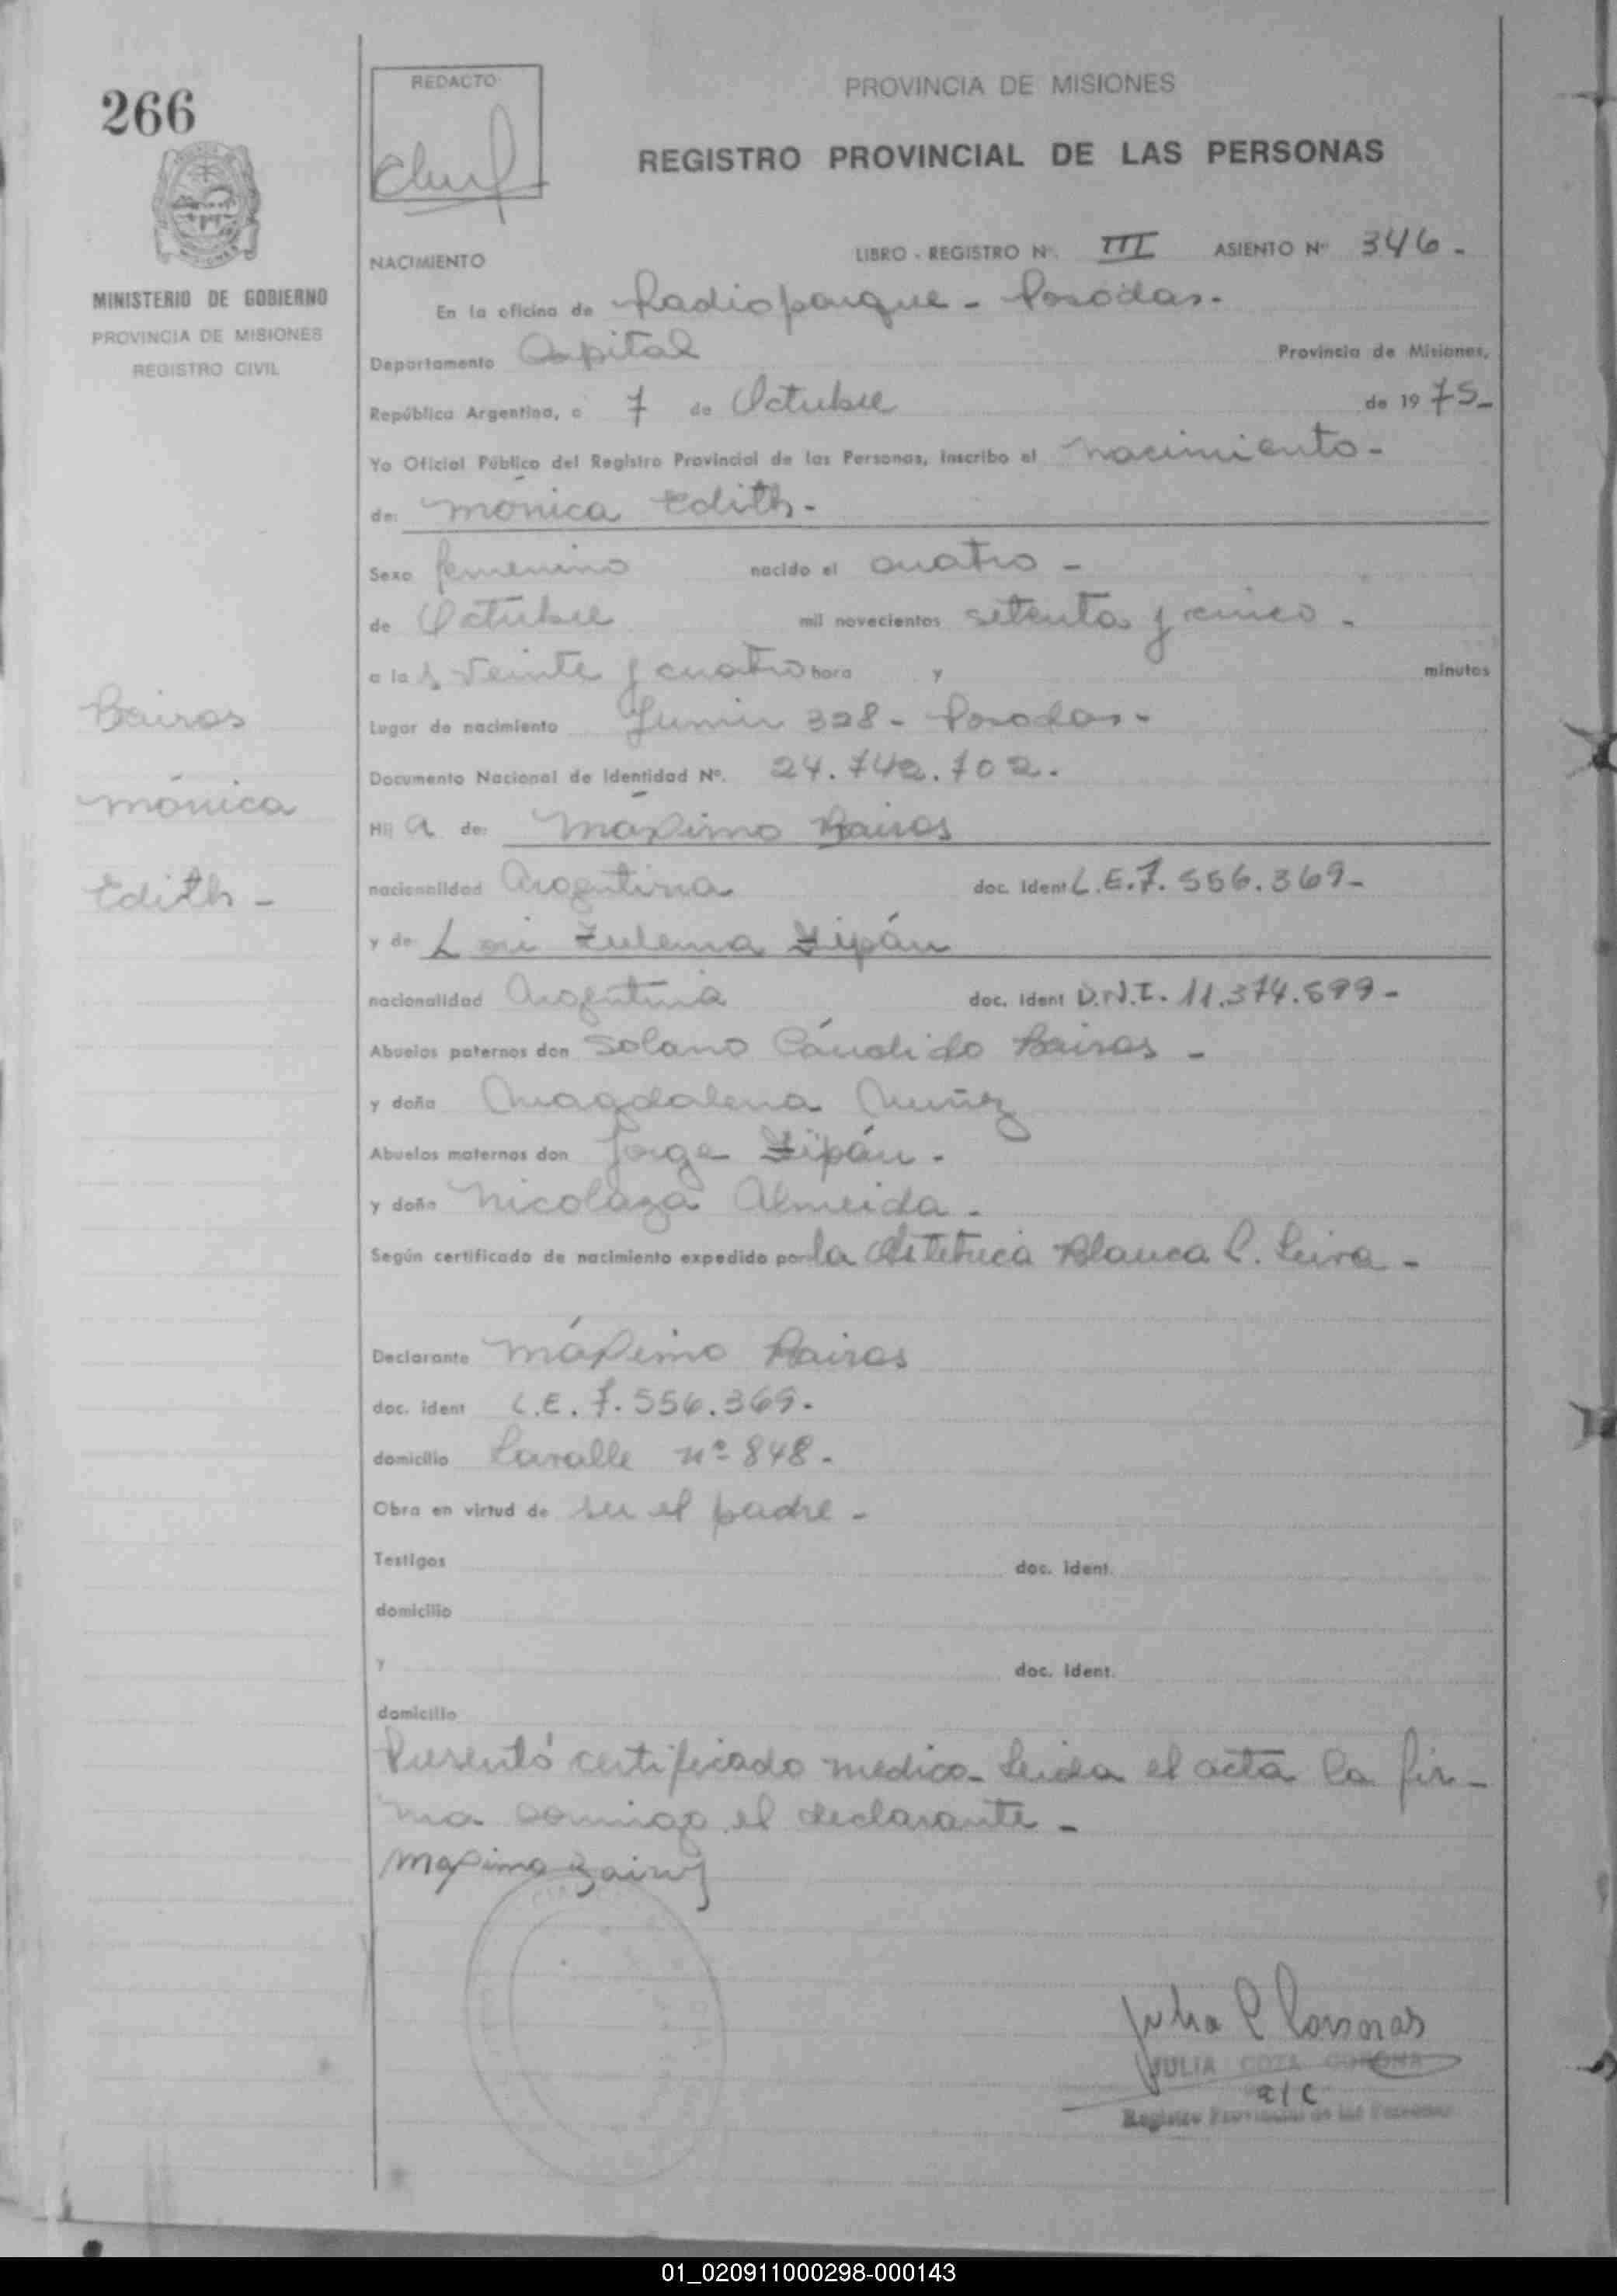 266
MINISTERIO DE GOBIERNO
PROVINCIA DE MISIONES
REGISTRO CIVIL
Bairos
Mónica
Edith -
REDACTO
PROVINCIA DE MISIONES
REGISTRO PROVINCIAL DE LAS PERSONAS
NACIMIENTO LIBRO - REGISTRO Nº. III ASIENTO Nº 346 -
En la oficina de Radioparque - Posadas -
Departamento Capital Provincia de Misiones,
República Argentina, a 7 de Octubre de 1975 -
Yo Oficial Público del Registro Provincial de las Personas, inscribo el nacimiento -
de: Mónica Edith -
Sexo femenino nacido el cuatro -
de Octubre mil novecientos setenta y cinco -
a las veinte y cuatro hora y minutos
Lugar de nacimiento Junin 328 - Posadas -
Documento Nacional de Identidad Nº. 24.742.702.
Hij a de: Máximo Bairos
nacionalidad Argentina doc. Ident L.E. 7.556.369 -
y de Zulema Zipán
nacionalidad Argentina doc. ident D.N.I. 11.374.899 -
Abuelos paternos don Solano Cándido Bairos -
y doña Magdalena Muñiz
Abuelos maternos don Jorge Zipán -
y doña Nicolaza Almeida -
Según certificado de nacimiento expedido por la Obstetrica Blanca Leiva -
Declarante Máximo Bairos
doc. ident L.E. 7.556.369 -
domicilio Lavalle nº 848 -
Obra en virtud de ser el padre -
Testigos doc. ident.
domicilio
y doc. ident.
domicilio
Presentó certificado medico - Leida el acta la fir-
ma conmigo el declarante -
Maximo Bairos
Julia
JULIA COTA CORONA
a/c
Registro Provincial de las Personas
01_020911000298-000143